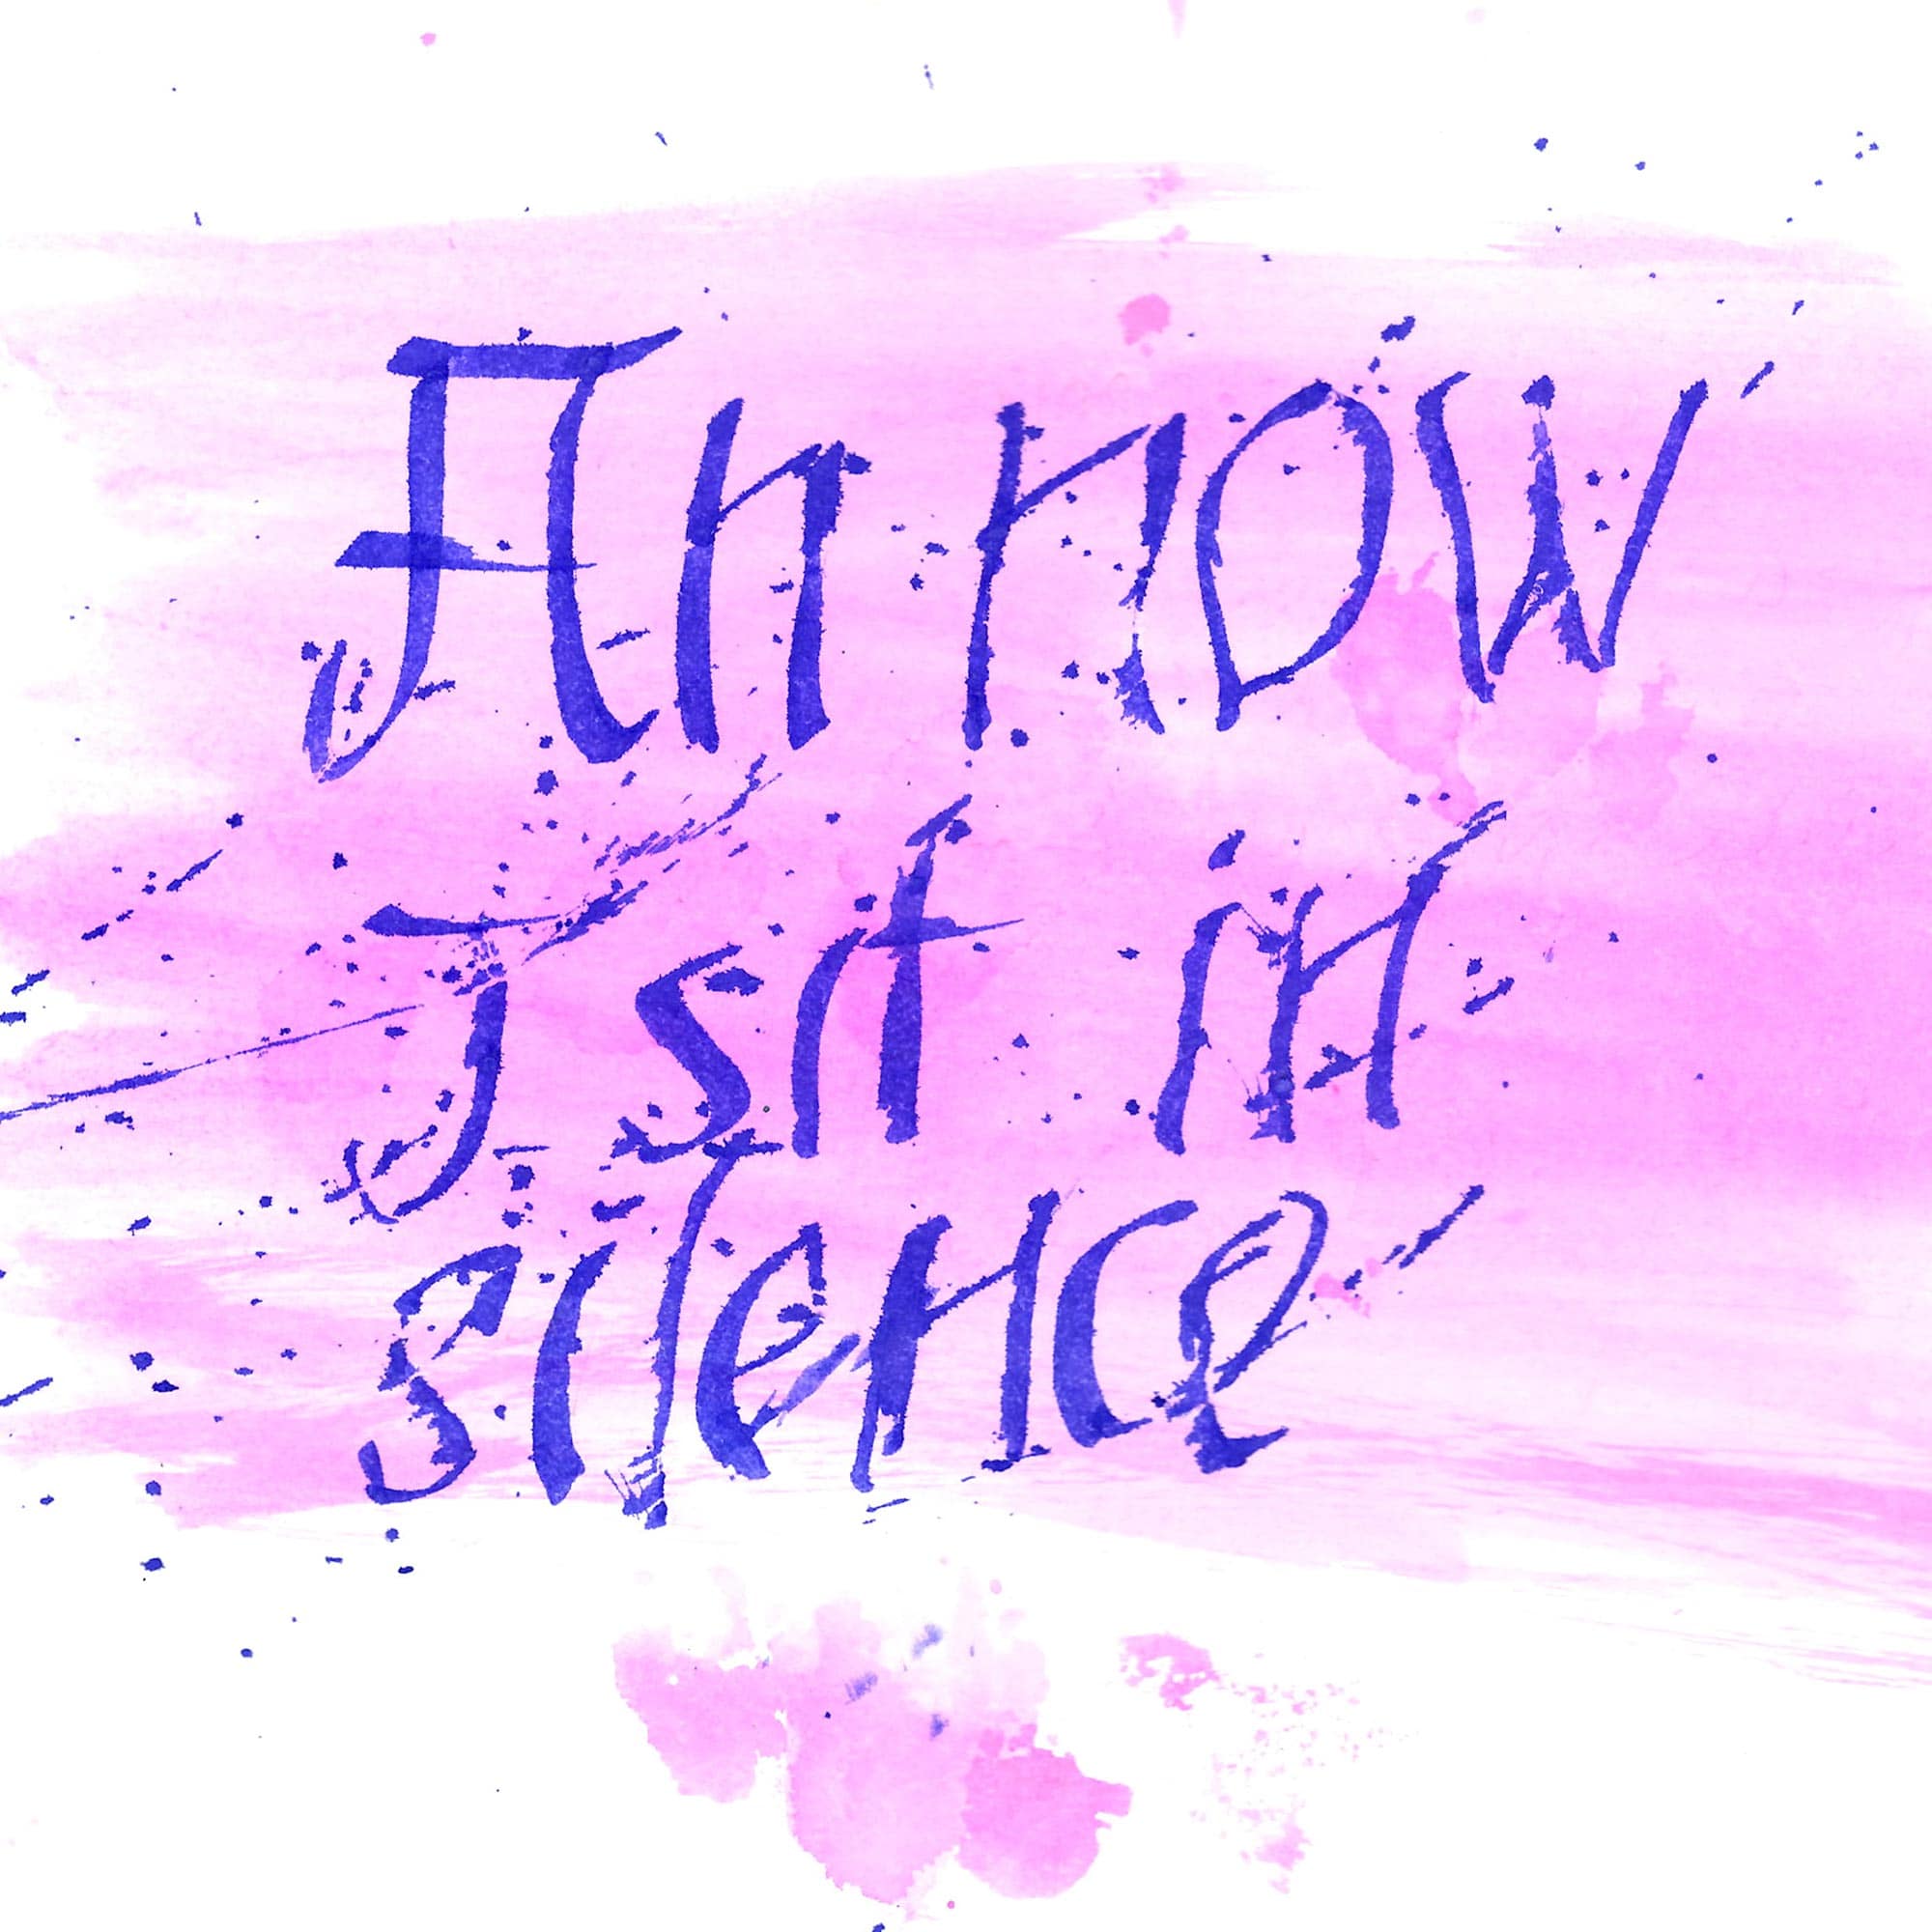 An now
I sit in
silence